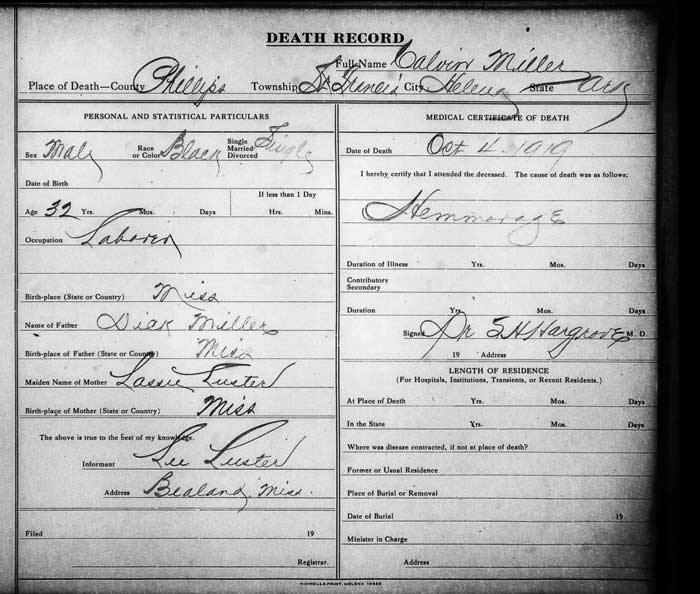 DEATH RECORD
Full Name Calvin Miller
Place of Death—County Phillips Township St. Francis City Helena State Ark
PERSONAL AND STATISTICAL PARTICULARS
Sex Male Race or Color Black Single Married Divorced Single
Date of Birth
If less than 1 Day
Age 32 Yrs. Mos. Days Hrs. Mins.
Occupation Laborer
Birth-place (State or Country) Miss
Name of Father Dick Miller
Birth-place of Father (State or Country) Miss
Maiden Name of Mother Lassie Luster
Birth-place of Mother (State or Country) Miss
The above is true to the best of my knowledge.
Informant Lee Luster
Address Miss.
Filed 19
Registrar.
MEDICAL CERTIFICATE OF DEATH
Date of Death Oct 4 1919
I hereby certify that I attended the deceased. The cause of death was as follows:
Hemmorage
Duration of Illness Yrs. Mos. Days
Contributory
Secondary
Duration Yrs. Mos. Days
Signed Dr S H Hargrove M. D.
19 Address
LENGTH OF RESIDENCE
(For Hospitals, Institutions, Transients, or Recent Residents.)
At Place of Death Yrs. Mos. Days
In the State Yrs. Mos. Days
Where was disease contracted, if not at place of death?
Former or Usual Residence
Place of Burial or Removal
Date of Burial 19
Minister in Charge
Address
NICHOLLS PRINT, HELENA